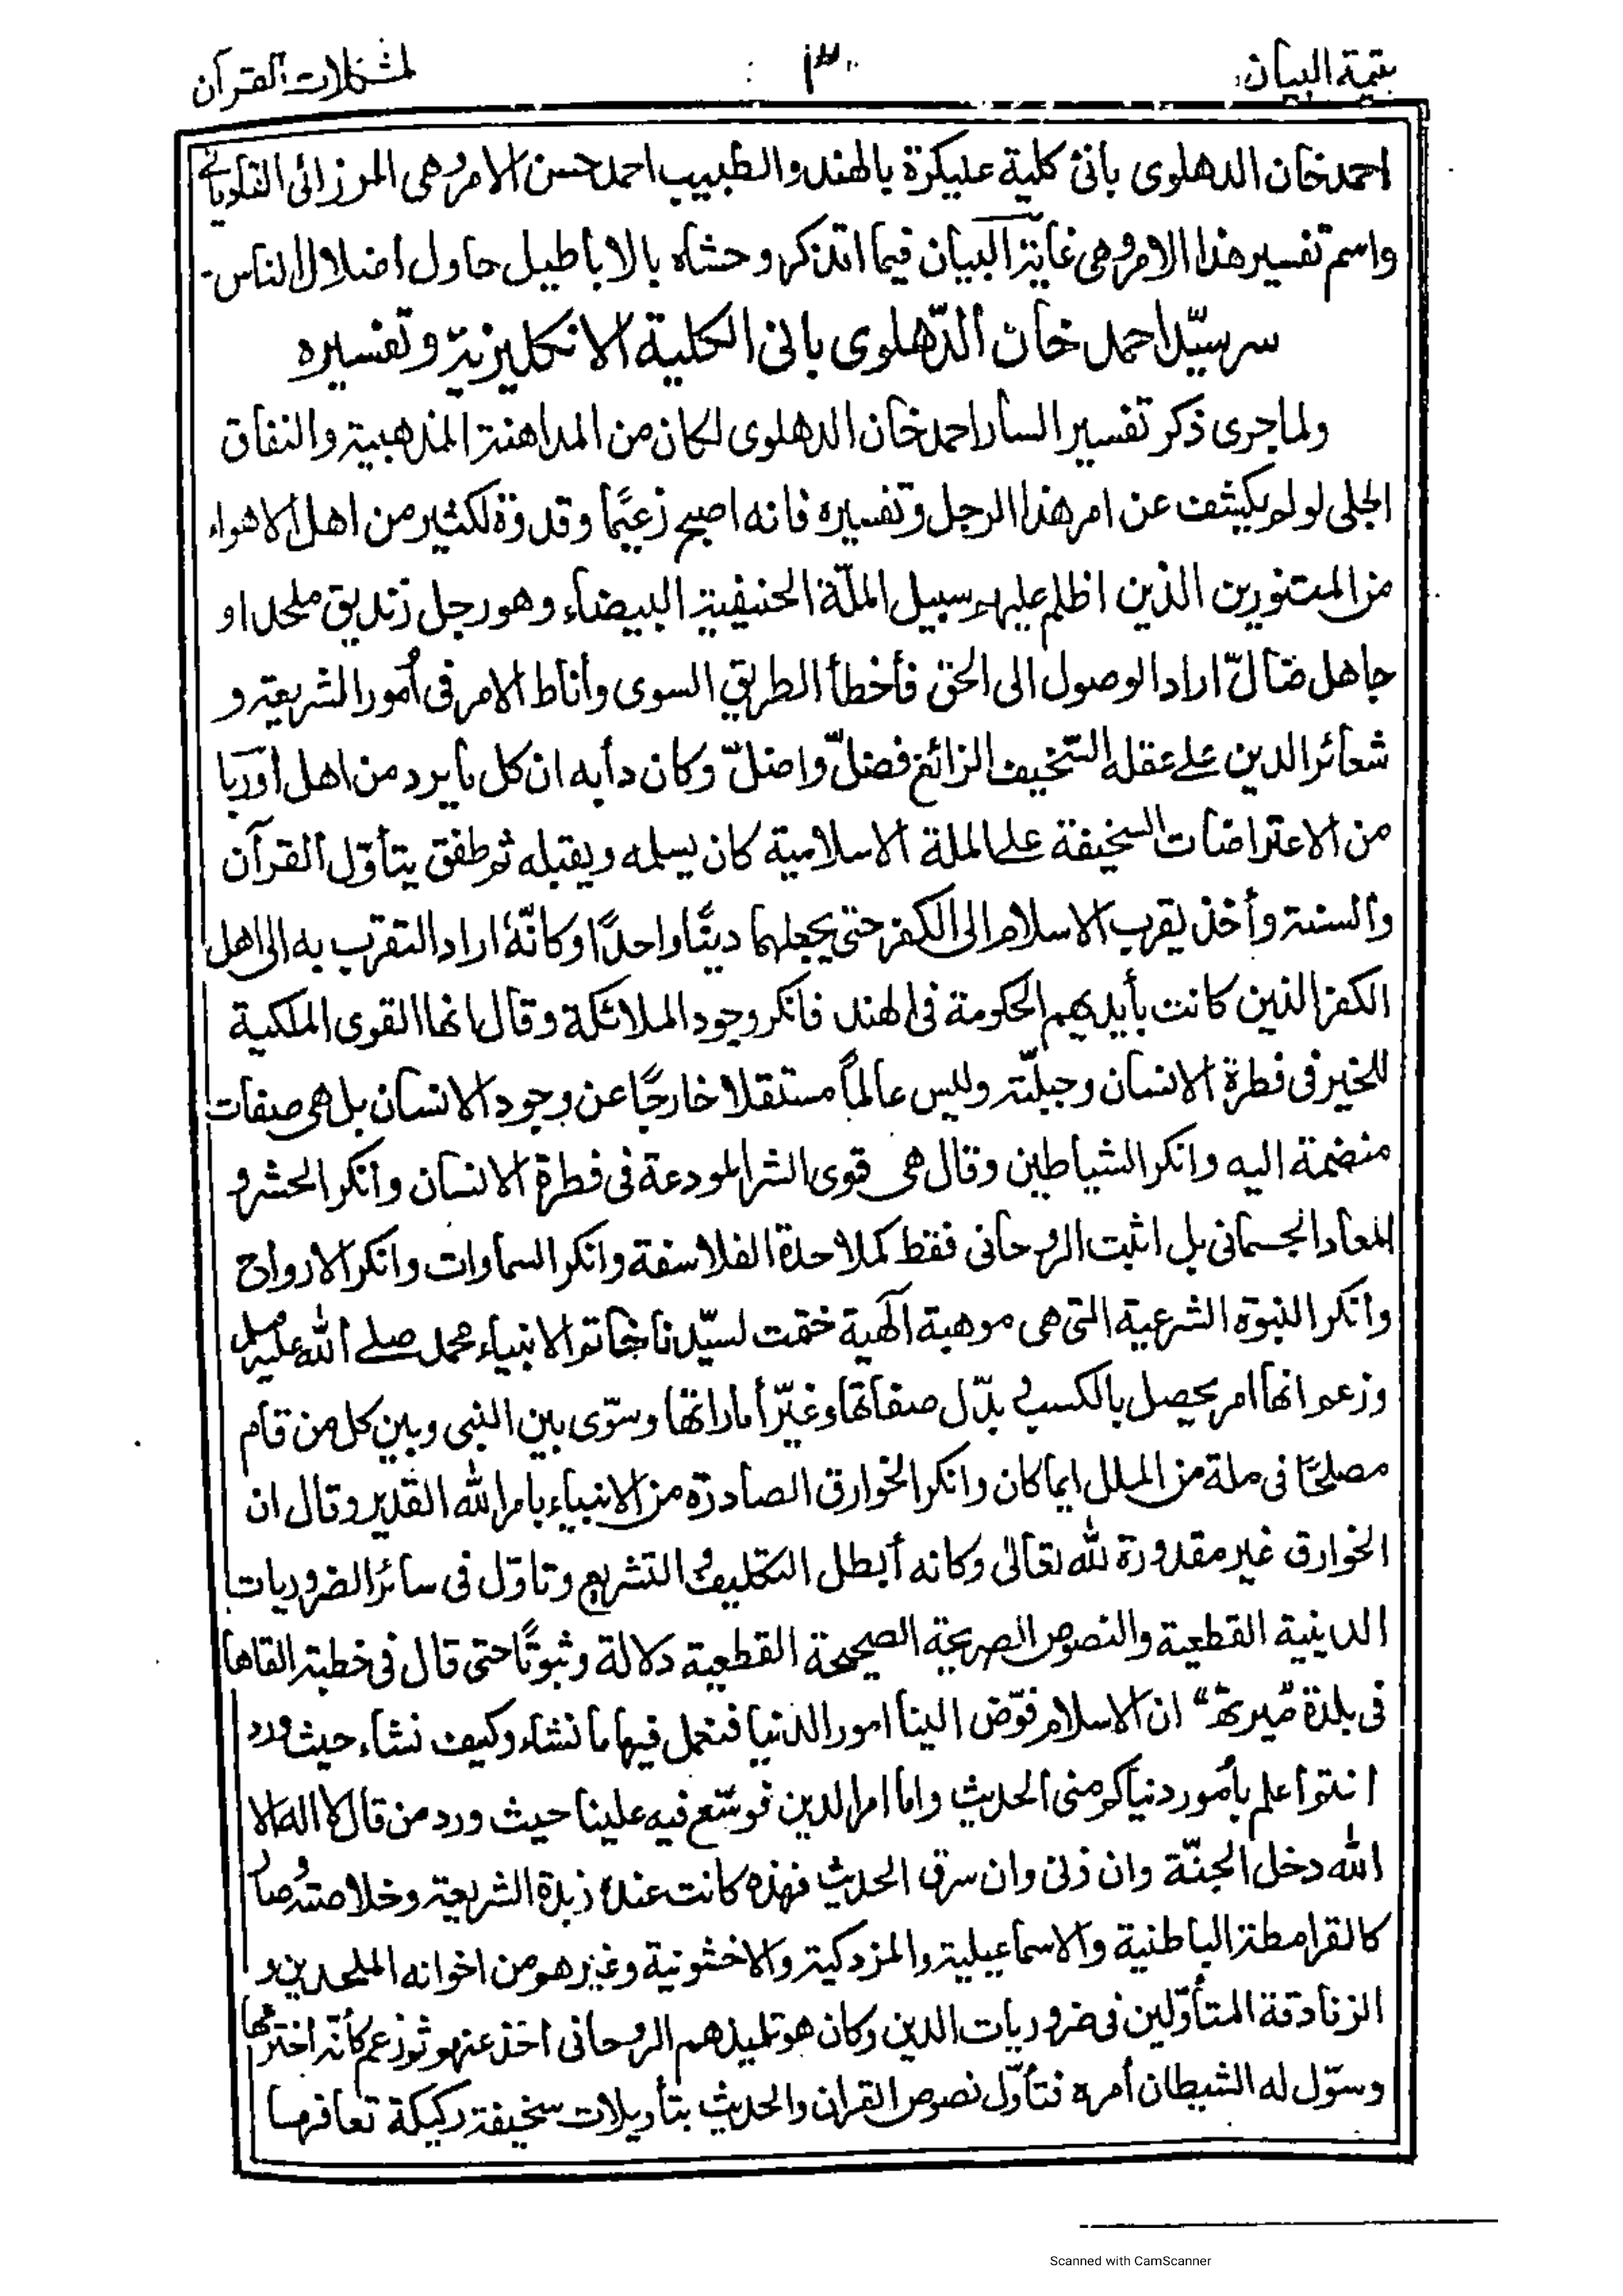 يتيمة البيان
٣٠
لمشكلات القرآن
احمد خان الدهلوى بانئ كلية عليكرة بالهند والطبيب احمد حسن الامروهى المرزائى القادياني
واسم تفسير هذا الامروهى غاية البيان فيما اتذكر وحشاه بالاباطيل حاول اضلال الناس-
سر سيّد احمد خان الدّهلوى بانى الكلية الانكليزية وتفسيره
ولما جرى ذكر تفسير السار احمد خان الدهلوى لكان من المداهنة المذهبية والنفاق
الجلى لو لم يكشف عن امر هذا الرجل وتفسيره فانه اصبح زعيمًا وقدوة لكثير من اهل الاهواء
من المتنورين الذين اظلم عليهم سبيل الملّة الحنيفية البيضاء وهو رجل زنديق ملحد او
جاهل ضالّ اراد الوصول الى الحق فأخطأ الطريق السوى وأناط الامر فى أمور الشريعة و
شعائر الدين على عقله السخيف الزائغ فضلّ واضلّ وكان دأبه ان كل ما يرد من اهل أوربا
من الاعتراضات السخيفة على الملة الاسلامية كان يسلمه ويقبله ثم طفق يتأوّل القرآن
والسنة وأخذ يقرب الاسلام الى الكفر حتى يجعلهما دينًا واحدًا وكأنّه اراد التقرب به الى اهل
الكفر الذين كانت بأيديهم الحكومة فى الهند فانكر وجود الملائكة وقال انها القوى الملكية
للخير فى فطرة الانسان وجبلّته وليس عالماً مستقلا خارجًا عن وجود الانسان بل هى صفات
منضمة اليه وانكر الشياطين وقال هى قوى الشر المودعة فى فطرة الانسان وانكر الحشر و
المعاد الجسمانى بل اثبت الروحانى فقط كملاحدة الفلاسفة وانكر السماوات وانكر الارواح
وانكر النبوة الشرعية التى هى موهبة آلهية ختمت لسيّدنا خاتم الانبياء محمد صلى الله عليه وسلم
وزعم انها امر يحصل بالكسب بدّل صفاتها وغيّر أماراتها وسوّى بين النبى وبين كل من قام
مصلحًا فى ملة من الملل ايما كان وانكر الخوارق الصادرة من الانبياء بامر الله القدير وقال ان
الخوارق غير مقدورة لله تعالىٰ وكانه أبطل التكليف والتشريع وتاوّل فى سائر الضروريات
الدينية القطعية والنصوص الصريحة الصحيحة القطعية دلالة وثبوتًا حتى قال فى خطبة القاها
فى بلدة ميرته “ ان الاسلام فوّض الينا امور الدنيا فنعمل فيها ما نشاء وكيف نشاء حيث ورد
انتم اعلم بأمور دنياكم منى الحديث واما امر الدين فوسّع فيه علينا حيث ورد من قال لا اله الا
الله دخل الجنّة وان زنى وان سرق الحديث فهذه كانت عنده زبدة الشريعة وخلاصته وصار
كالقرامطة الباطنية والاسماعيلية والمزدكية والاخشونية وغيرهم من اخوانه الملحدين و
الزنادقة المتأوّلين فى ضروريات الدين وكان هو تلميذهم الروحانى اخذ عنهم ثم زعم كأنّه اخترعها
وسوّل له الشيطان أمره فتأوّل نصوص القران والحديث بتأويلات سخيفة ركيكة تعافها
Scanned with CamScanner